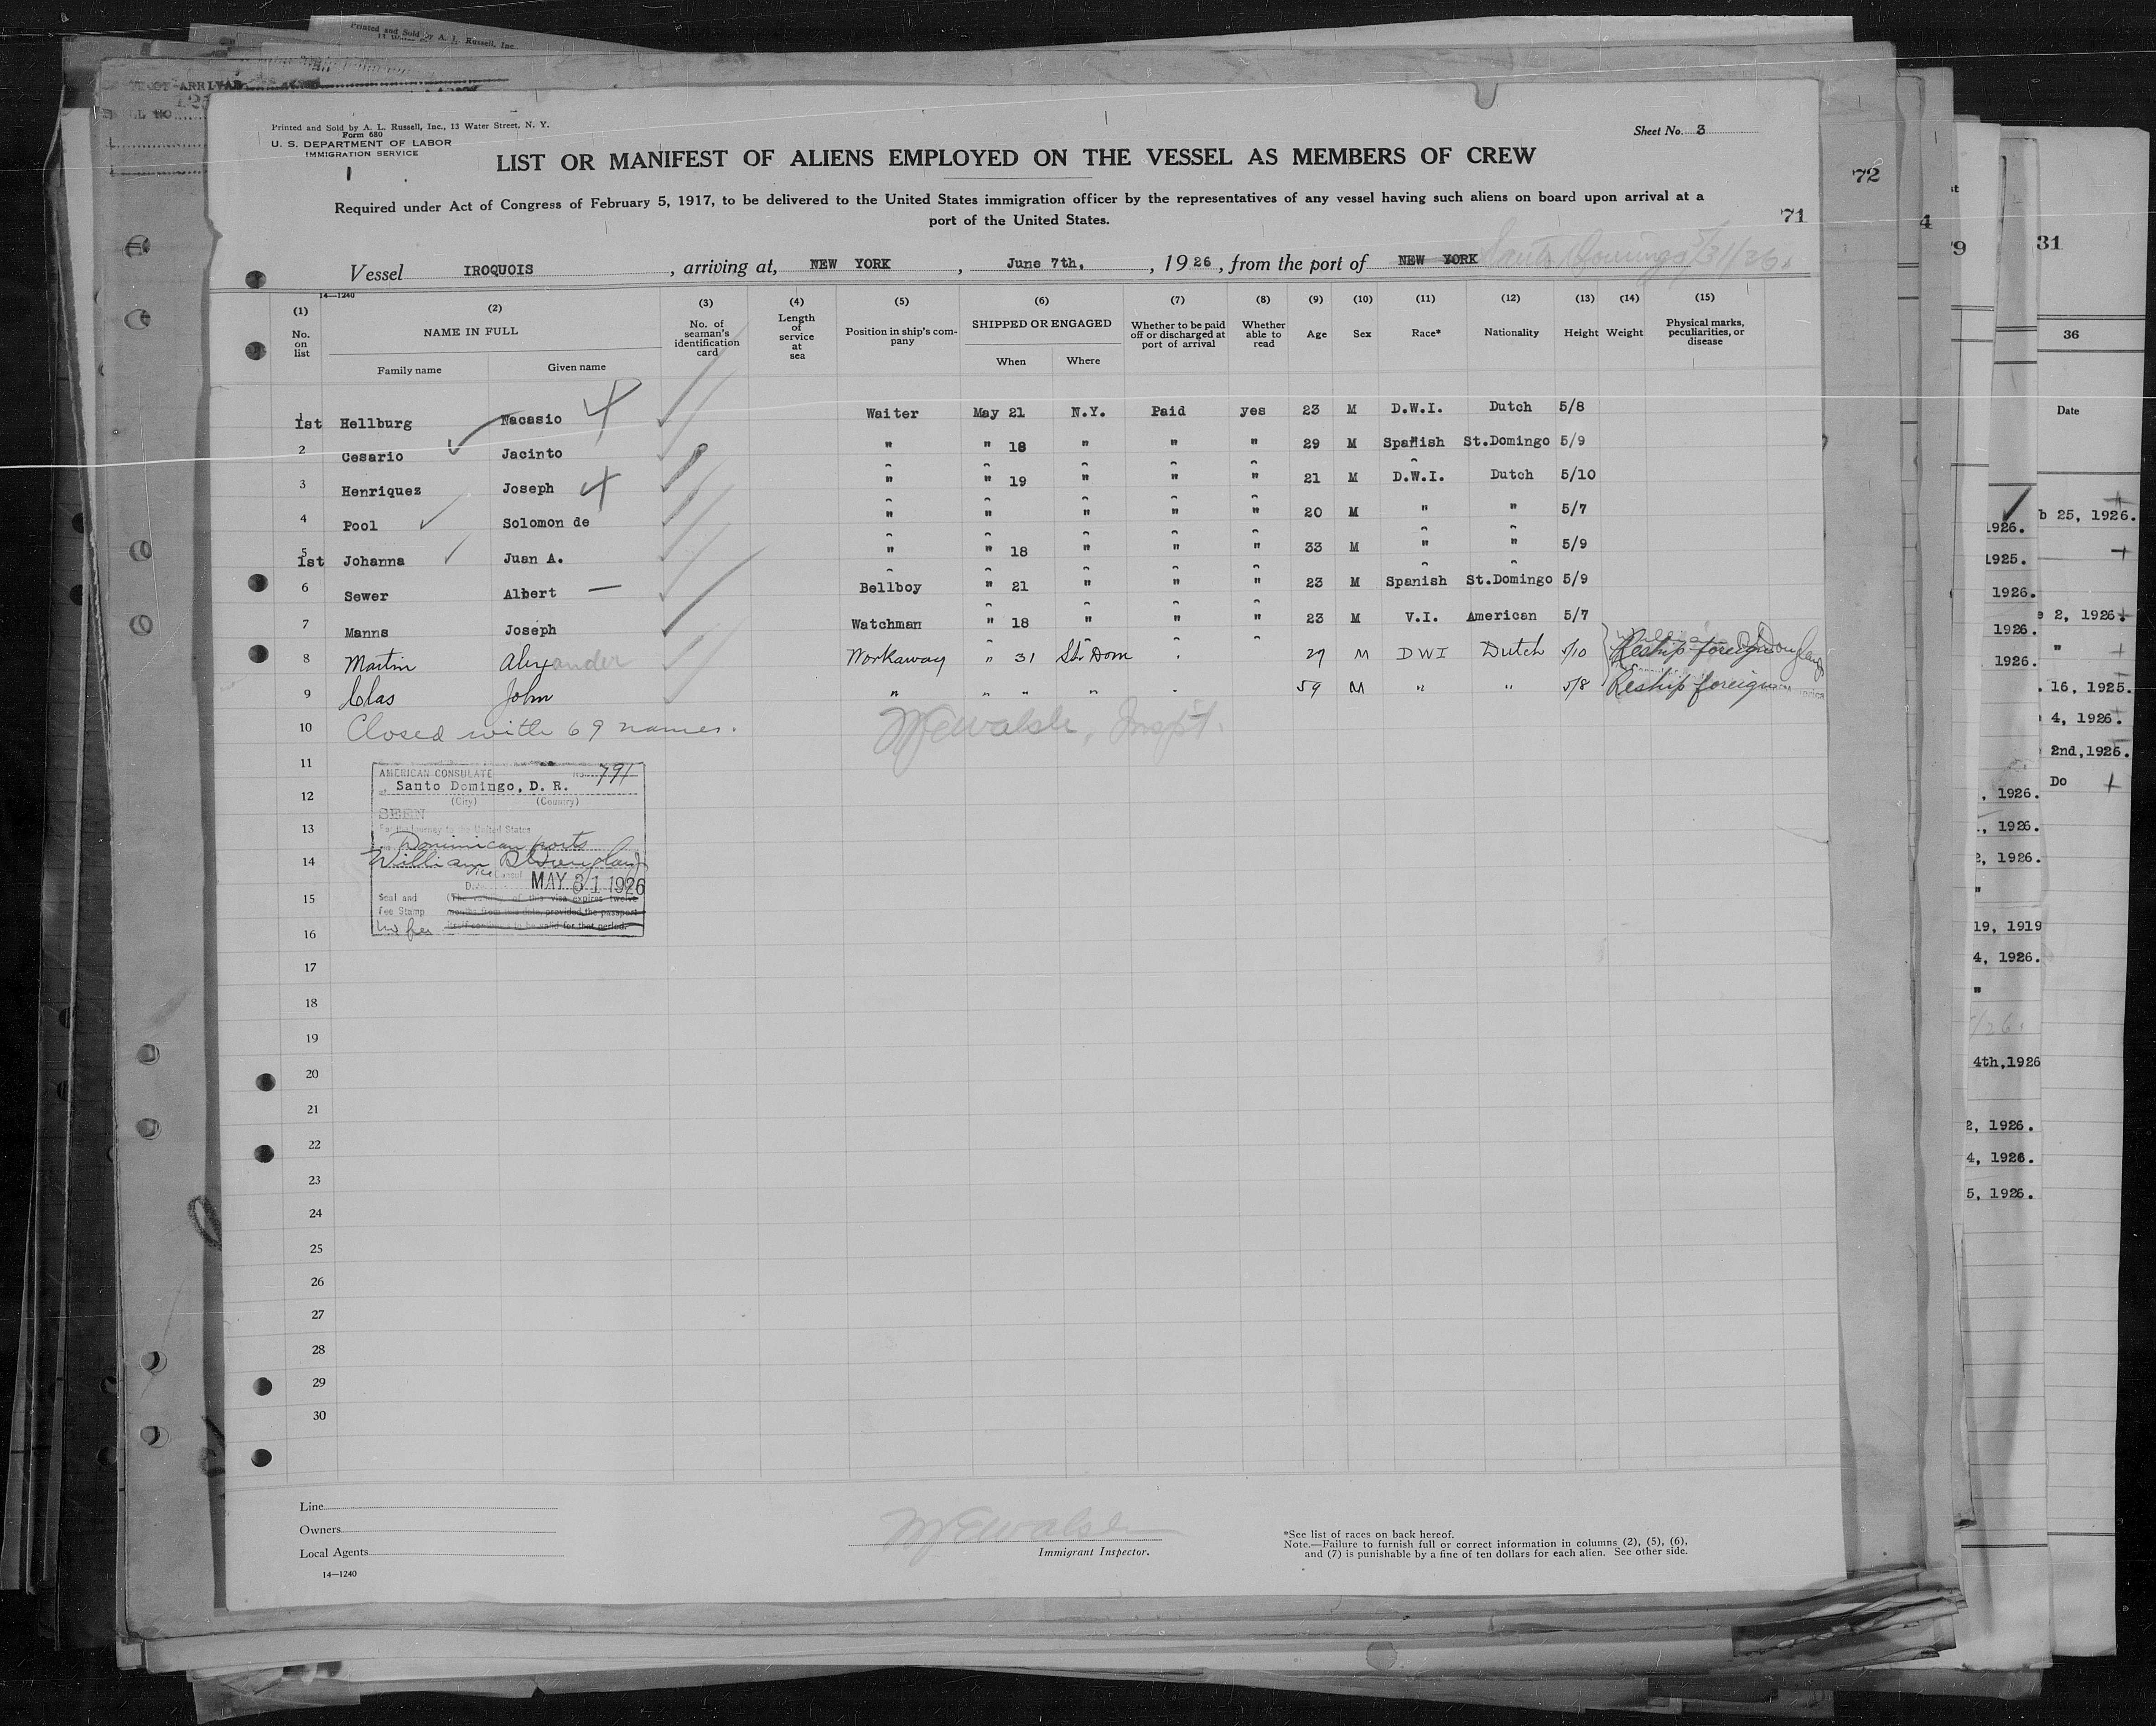 Printed and Sold by A. L. Russell, Inc.
OF ARRIVAL
LL NO
Printed and Sold by A. L. Russell, Inc., 13 Water Street, N. Y.
Form 680
U. S. DEPARTMENT OF LABOR
IMMIGRATION SERVICE
Sheet No. 3
LIST OR MANIFEST OF ALIENS EMPLOYED ON THE VESSEL AS MEMBERS OF CREW
Required under Act of Congress of February 5, 1917, to be delivered to the United States immigration officer by the representatives of any vessel having such aliens on board upon arrival at a
port of the United States.
71
72
Vessel IROQUOIS, arriving at, NEW YORK, June 7th, , 1926, from the port of NEW YORK Santo Domingo 5/31/26.
14—1240
(1) No. on list
(2) NAME IN FULL Family name Given name
(3) No. of seaman's identification card
(4) Length of service at sea
(5) Position in ship's company
(6) SHIPPED OR ENGAGED When Where
(7) Whether to be paid off or discharged at port of arrival
(8) Whether able to read
(9) Age
(10) Sex
(11) Race*
(12) Nationality
(13) Height
(14) Weight
(15) Physical marks, peculiarities, or disease
1 1st Hellburg Nacasio Waiter May 21 N.Y. Paid yes 23 M D.W.I. Dutch 5/8
2 Cesario Jacinto " " 18 " " " 29 M Spanish St.Domingo 5/9
3 Henriquez Joseph " " 19 " " " 21 M D.W.I. Dutch 5/10
4 Pool Solomon de " " " " " 20 M " " 5/7
5 1st Johanna Juan A. " " 18 " " " 33 M " " 5/9
6 Sewer Albert — Bellboy " 21 " " " 23 M Spanish St.Domingo 5/9
7 Manns Joseph Watchman " 18 " " " 23 M V.I. American 5/7
8 Martin Alexander Workaway " 31 St. Dom " 29 M DWI Dutch 5/10 Reship foreign
9 Clas John " " " " " 59 M " " 5/8 Reship foreign
10 Closed with 69 names. Walsh, Inspt.
11
12
13
14
15
16
17
18
19
20
21
22
23
24
25
26
27
28
29
30
AMERICAN CONSULATE No. 791
Santo Domingo, D. R.
(City) (Country)
SEEN
For the journey to the United States
Dominican ports
William
Vice Consul
Date MAY 31 1926
Seal and (The validity of this visa expires twelve
Fee Stamp months from this date, provided the passport
No fee itself continues to be valid for that period.
Line
Owners
Local Agents
14—1240
Walsh
Immigrant Inspector.
*See list of races on back hereof.
Note.—Failure to furnish full or correct information in columns (2), (5), (6),
and (7) is punishable by a fine of ten dollars for each alien. See other side.
4
9
31
36
Date
1926.
1925.
1926.
1926.
1926.
, 1926.
, 1926.
2, 1926.
"
19, 1919
4, 1926.
"
4th,1926
2, 1926.
4, 1926.
5, 1926.
b 25, 1926.
2, 1926.
"
16, 1925.
4, 1926.
2nd,1926.
Do